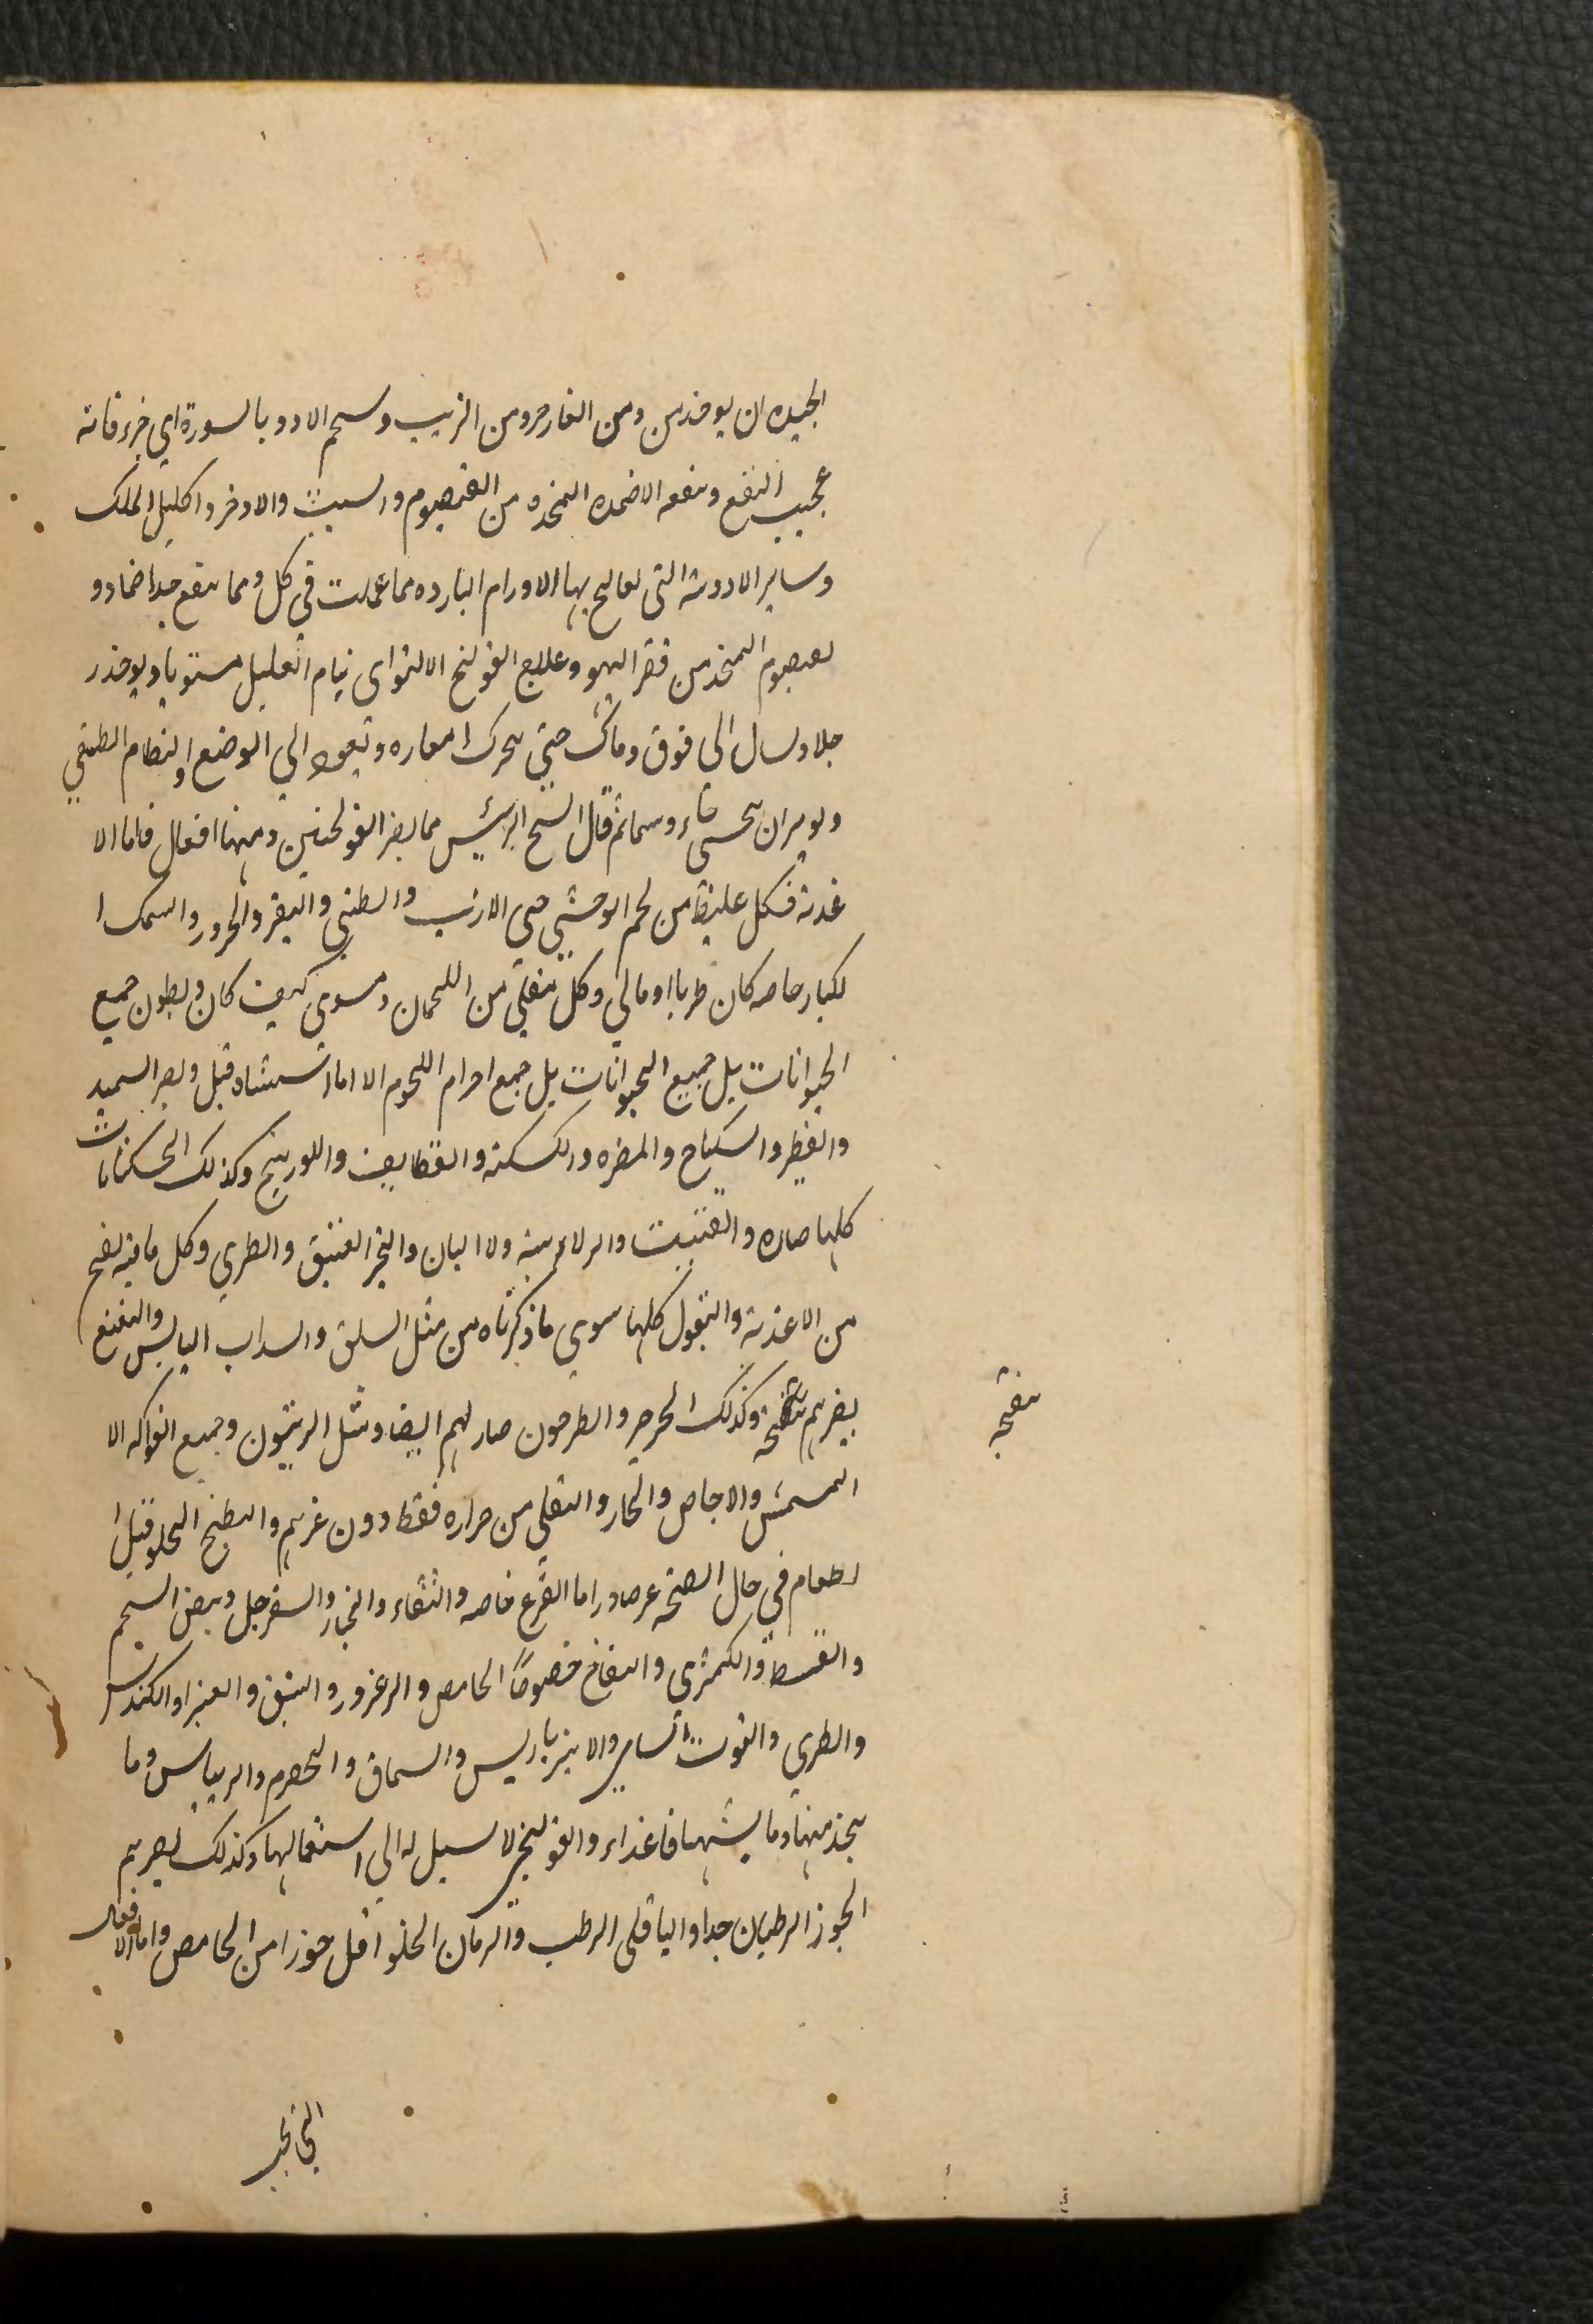 الجيده ان يوخذ من ومن الغار جزو من الزيت وسحم الادو بالسوية اي جزء فانه
عجيب النفع وينفعه الاضمده المتخذه من القيصوم والسبت والاذخر واكليل الملك
وساير الادوية التى يعالج بها الاورام البارده مما عملت في كل ومما ينفع جدا ضماد و
لقيصوم المتخذ من قفر اليهو وعلاج القولنج الالتواى ينام العليل مستويا ويوخذ ر
جلاه ويسال الى فوق حتي يتحرك امعاره وتعود الي الوضع والنظام الطبيعي
ثم قال الشيخ الرئيس مما يضر القولنجين ومنها افعال فاما الا
غذية فكل غليظ من لحم الوحشي حتى الارنب والظبي والبقر والجزور والسمك ا
لكبار خاصه كان طريا او مالح وكل مقلي من اللحمان ومشوي كيف كان وبطون جميع
الحيوانات بل جميع الحيوانات بل جميع اجرام اللحوم الا ما استثناه قبل ويضر السميد
والفطير والسكباج والمضره والكسكنه والقطايف واللوزينج وكذلك الخشكنانات
كلها ضاره والفتيت والزلابيه والالبان والجبن العتيق والطري وكل ما فيه نفخ
من الاغذية والبقول كلها سوي ما ذكرناه من مثل السلق والسداب اليابس والنعنع
يضرهم بنفخه وكذلك الجرجر والطرخون ضار لهم ايضا ومثل الزيتون وجميع الفواكه الا
المشمش والاجاص والخار والتقلي من حراره فقط دون غيرهم والبطيخ الحلو قبل ا
لطعام في حال الصحة اما القرع خاصه والقثاء والخيار والسفرجل وبعض الشلجم
والقنبيط والكمثرى والتفاح خصوصًا الحامض والزعرور والنبق والغبيرا والكندس
والطري والتوت الشامي والانبرباريس والسماق والحصرم والريباس وما
يتخذ منها وما يشبهها فاغذاء والقولنجي لا سبيل له الي استعمالها وكذلك يضرهم
الجوز الرطبان جدا والباقلى الرطب والرمان الحلو اقل ضررا من الحامض واما الافعال
بنفخه